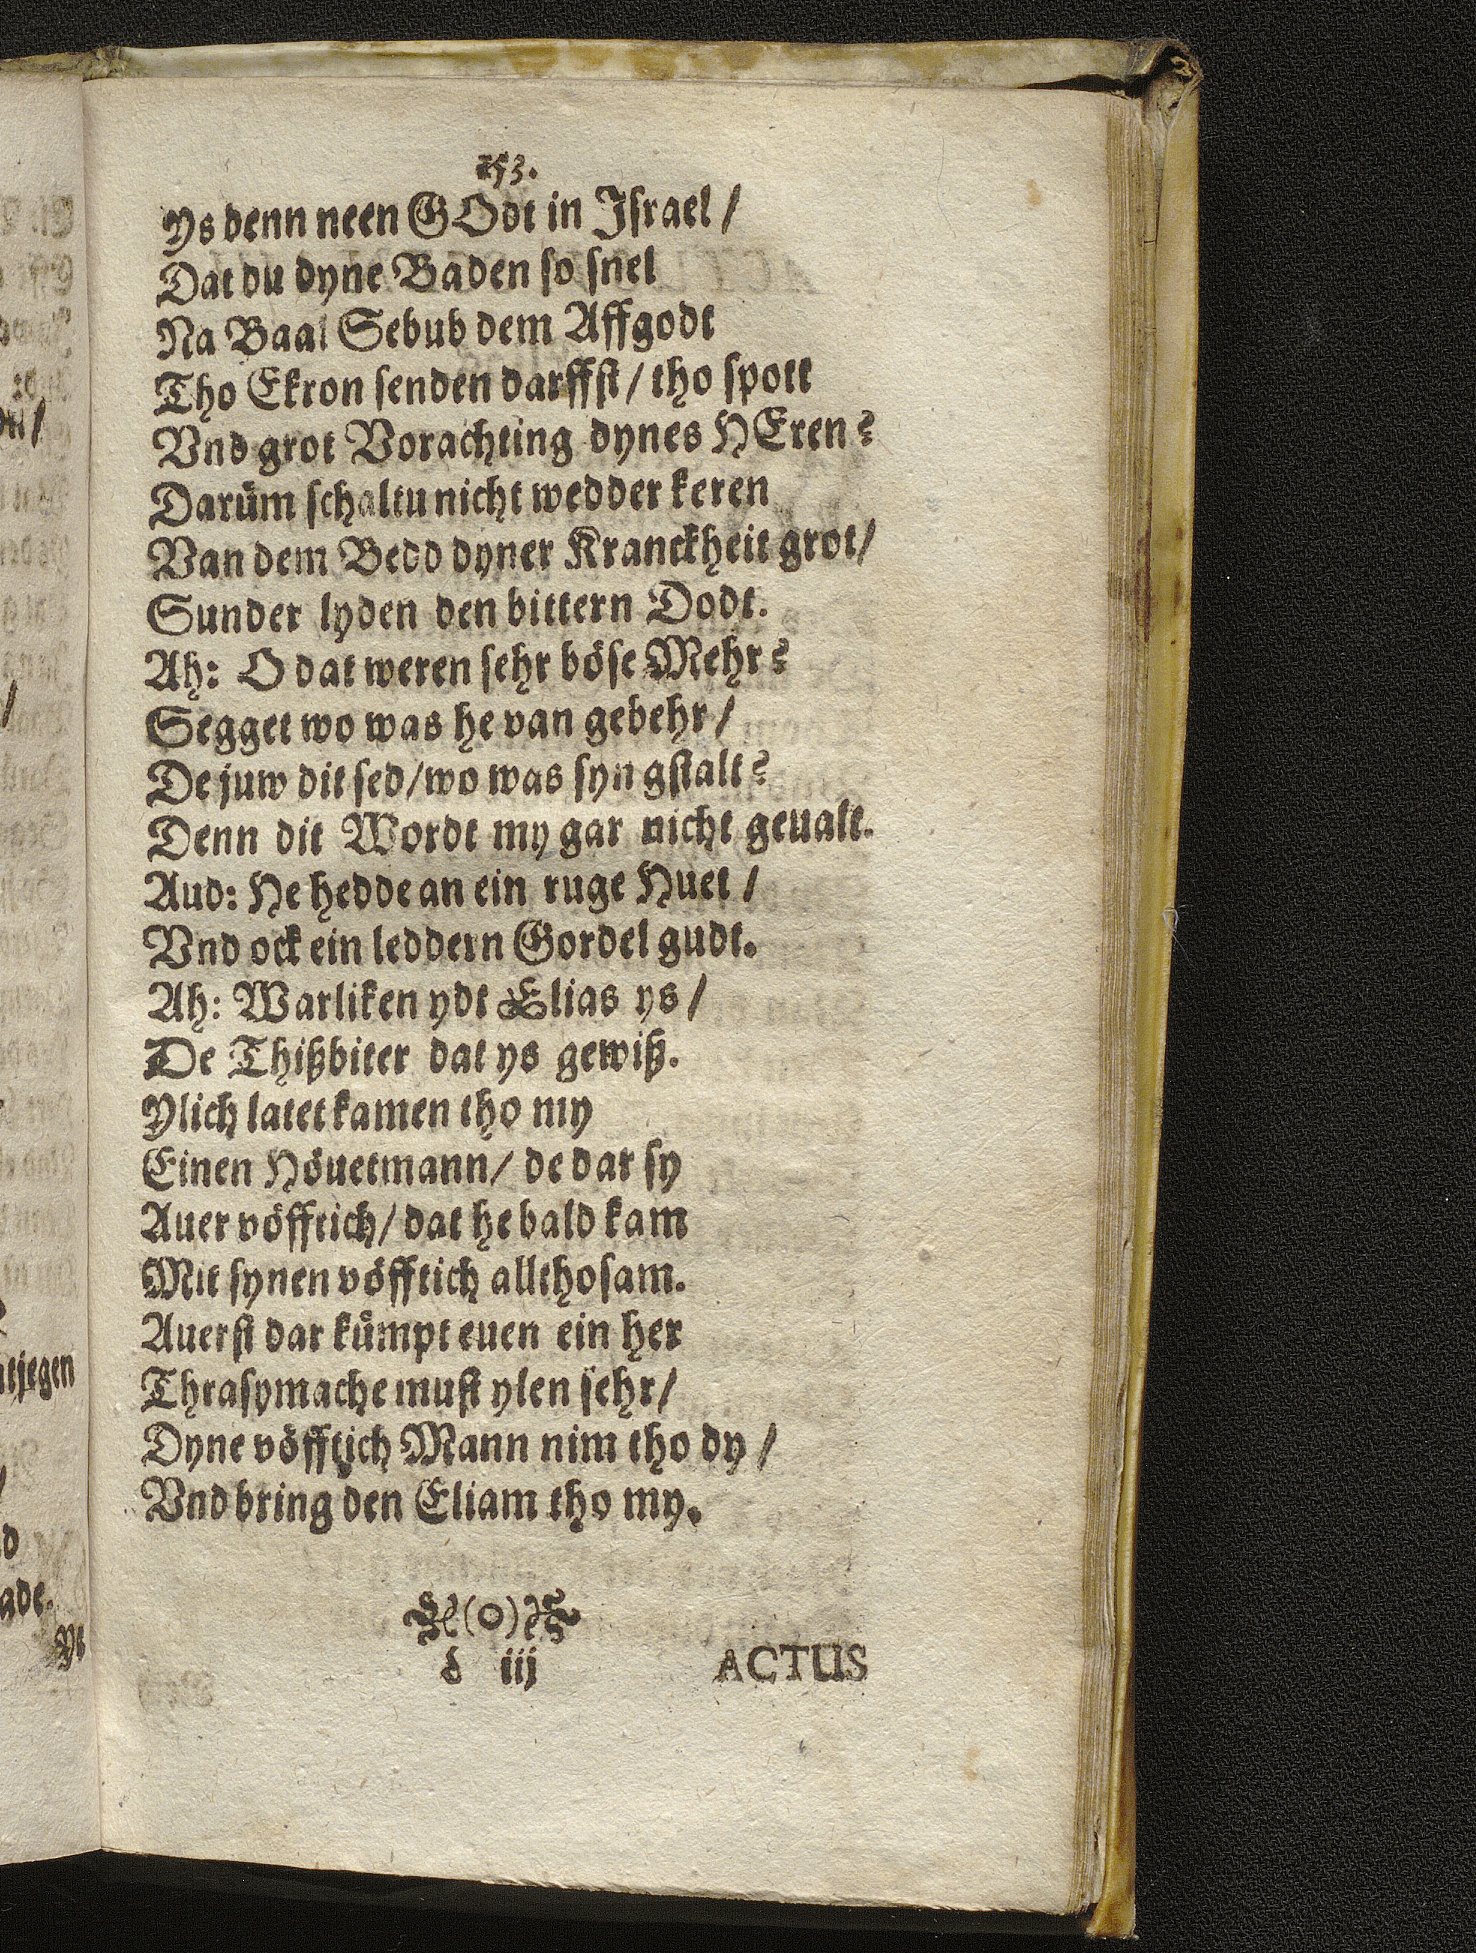 153.
Ys denn neen GOdt in Jsrael /
Dat du dyne Baden so snel
Na Baal Sebub dem Affgodt
Tho Ekron senden darffst / tho spott
Vnd grot Vorachting dynes HEren?
Darüm schaltu nicht wedder keren
Van dem Bedd dyner Kranckheit grot /
Sunder lyden den bittern Dodt.
Ah: O dat weren sehr böse Mehr?
Segget wo was he van gebehr /
De juw dit sed / wo was syn gstalt?
Denn dit Wordt my gar nicht geualt.
Aud: He hedde an ein ruge Huet /
Vnd ock ein leddern Gordel gudt.
Ah: Warliken ydt Elias ys /
De Thißbiter dat ys gewiß.
Ylich latet kamen tho my
Einen Höuetmann / de dar sy
Auer vöfftich / dat he bald kam
Mit synen vöfftich allthosam.
Auerst dar kümpt euen ein her
Thrasymache must ylen sehr /
Dyne vöfftich Mann nim tho dy /
Vnd bring den Eliam tho my.
(o)
d iij ACTUS